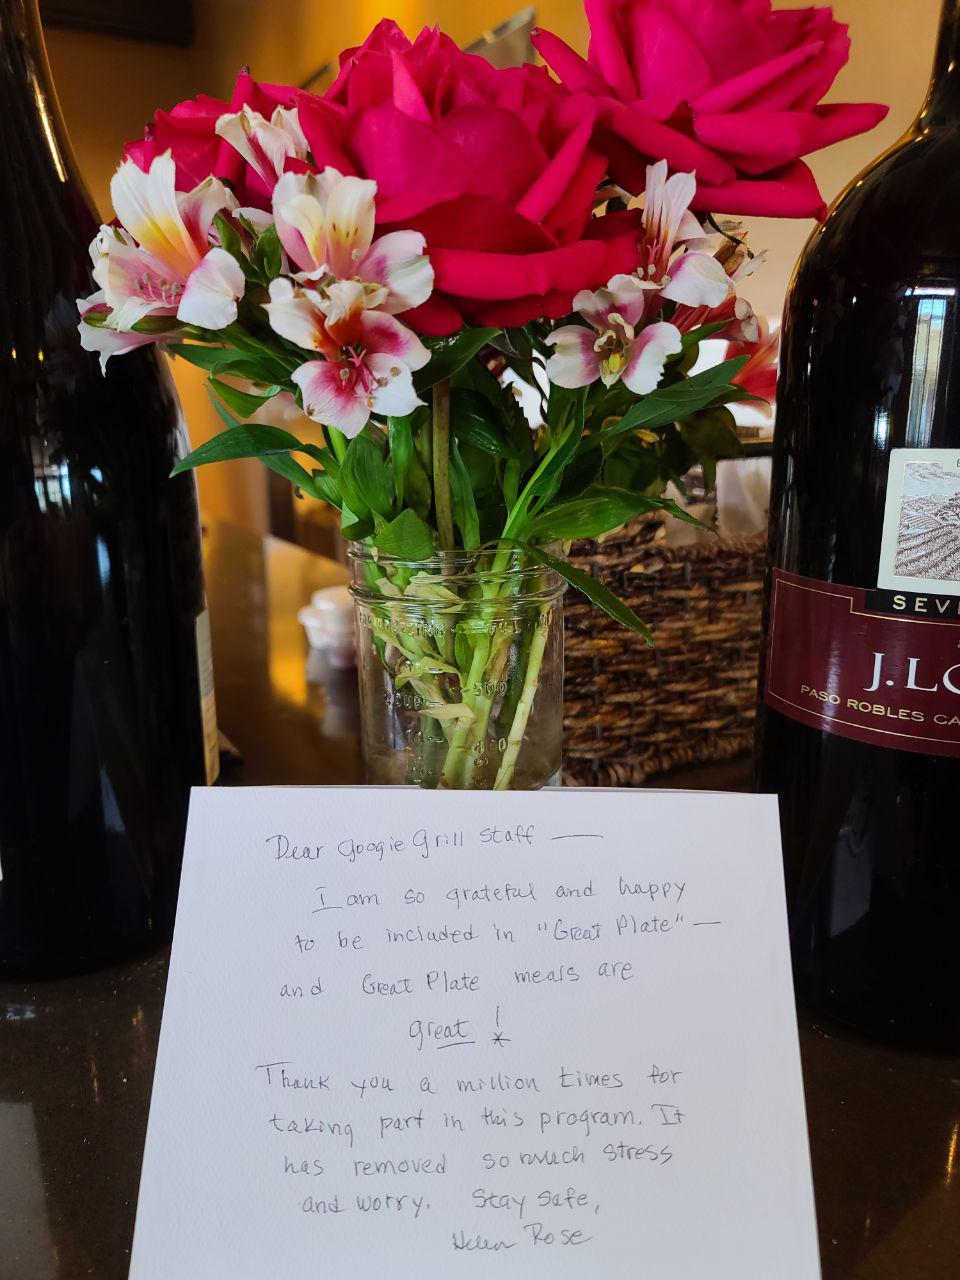 SEVE
J.LO
PASO ROBLES CA
500
400
Dear Googie Grill Staff —
I am so grateful and happy
to be included in "Great Plate" —
and Great Plate meals are
great!
Thank you a million times for
taking part in this program. It
has removed so much stress
and worry. Stay Safe,
Helen Rose